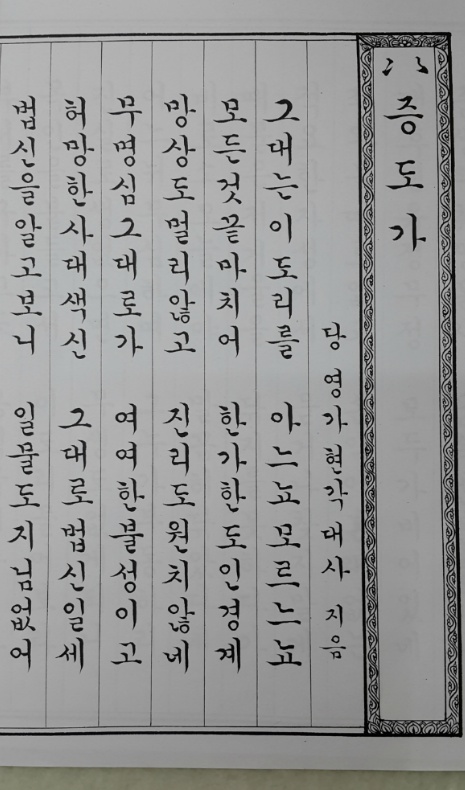 증도가
당 영가현각대사 지음
그대는이도리를 아느뇨모르느뇨
모든것끝마치어 한가한도인경계
망상도멀리않고 진리도원치않네
무명심그대로가 여여한불성이고
허망한사대색신 그대로법신일세
법신을알고보니 일물도지님없어